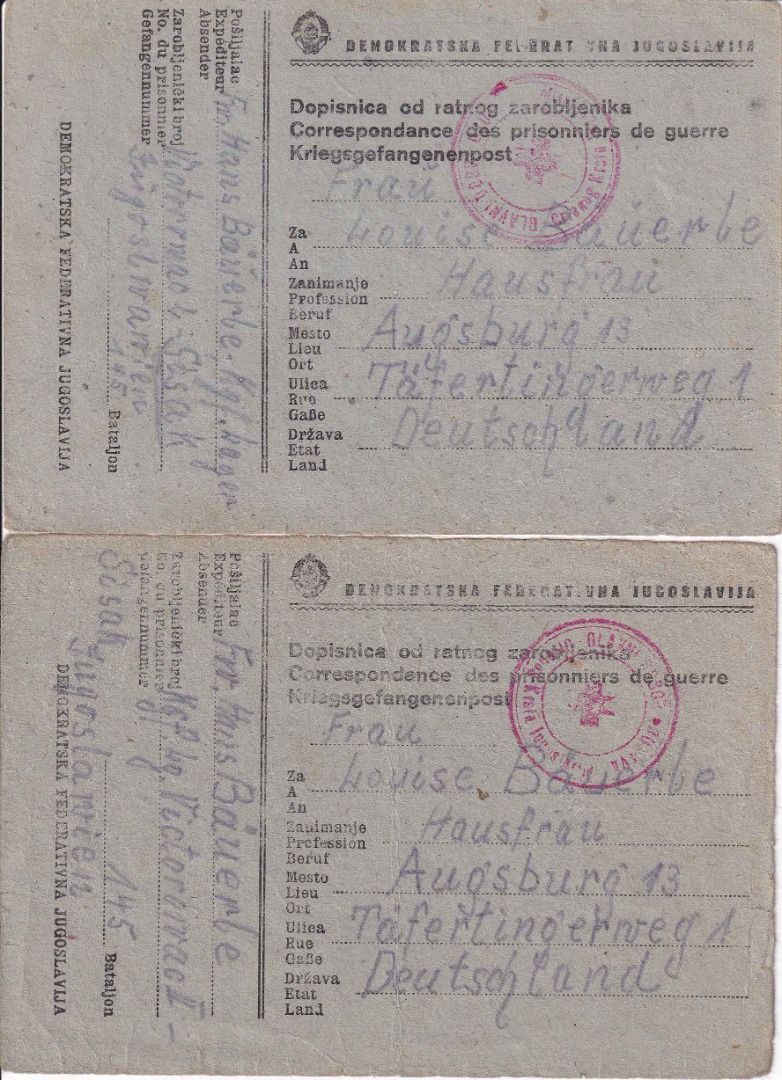 DEMOKRATSKA FEDERATIVNA JUGOSLAVIJA
Dopisnica od ratnog zarobljenika
Correspondance des prisonniers de guerre
Kriegsgefangenenpost
Frau
Za
A Louise Bäuerle
An
Zanimanje
Profession Hausfrau
Beruf
Mesto
Lieu Augsburg 13
Ort
Ulica
Rue Täfertingerweg 1
Gaße
Država
Etat Deutschland
Land
Pošiljalac
Expéditeur Fr. Hans Bäuerle. Kgf. Lager
Absender
Zarobljenički broj
No. du prisonnier Sisak
Gefangennummer
145 Bataljon
DEMOKRATSKA FEDERATIVNA JUGOSLAVIJA
DEMOKRATSKA FEDERATIVNA JUGOSLAVIJA
Dopisnica od ratnog zarobljenika
Correspondance des prisonniers de guerre
Kriegsgefangenenpost
Frau
Za
A Louise Bäuerle
An
Zanimanje
Profession Hausfrau
Beruf
Mesto
Lieu Augsburg 13
Ort
Ulica
Rue Täfertingerweg 1
Gaße
Država
Etat Deutschland
Land
Pošiljalac
Expéditeur Hans Bäuerle
Absender
Zarobljenički broj
No. du prisonnier
Gefangennummer
Sisak
145 Bataljon
DEMOKRATSKA FEDERATIVNA JUGOSLAVIJA